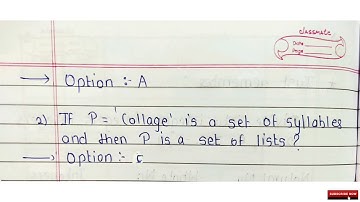 classmate
Date
Page
→ Option :- A
2) If P = 'Collage' is a set of syllables
and then P is a set of lists ?
→ Option :-
SUBSCRIBE NOW